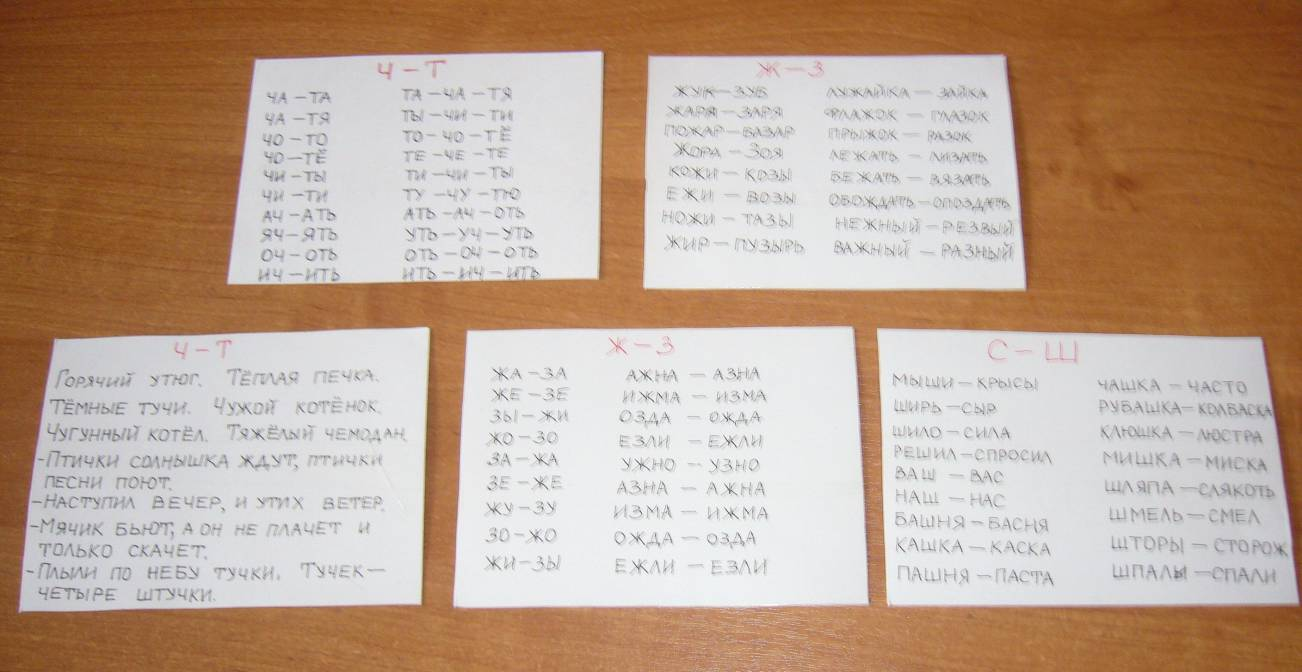 Ч – Т
ЧА – ТА
ЧА – ТЯ
ЧО – ТО
ЧО – ТЁ
ЧИ – ТЫ
ЧИ – ТИ
АЧ – АТЬ
ЯЧ – ЯТЬ
ОЧ – ОТЬ
ИЧ – ИТЬ
ТА – ЧА – ТЯ
ТЫ – ЧИ – ТИ
ТО – ЧО – ТЁ
ТЕ – ЧЕ – ТЕ
ТИ – ЧИ – ТЫ
ТУ – ЧУ – ТЮ
АТЬ – АЧ – ОТЬ
УТЬ – УЧ – УТЬ
ОТЬ – ОЧ – ОТЬ
ИТЬ – ИЧ – ИТЬ
Ж – З
ЖУК – ЗУБ
ЖАРЯ – ЗАРЯ
ПОЖАР – БАЗАР
ЖОРА – ЗОЯ
КОЖИ – КОЗЫ
ЕЖИ – ВОЗЫ
НОЖИ – ТАЗЫ
ЖИР – ПУЗЫРЬ
ЛУЖАЙКА – ЗАЙКА
ФЛАЖОК – ГЛАЗОК
ПРЫЖОК – РАЗОК
ЛЕЖАТЬ – ЛИЗАТЬ
БЕЖАТЬ – ВЯЗАТЬ
ОБОЖДАТЬ – ОПОЗДАТЬ
НЕЖНЫЙ – РЕЗВЫЙ
ВАЖНЫЙ – РАЗНЫЙ
Ч – Т
ГОРЯЧИЙ УТЮГ. ТЁПЛАЯ ПЕЧКА.
ТЁМНЫЕ ТУЧИ. ЧУЖОЙ КОТЁНОК.
ЧУГУННЫЙ КОТЁЛ. ТЯЖЁЛЫЙ ЧЕМОДАН.
- ПТИЧКИ СОЛНЫШКА ЖДУТ, ПТИЧКИ
ПЕСНИ ПОЮТ.
- НАСТУПИЛ ВЕЧЕР, И УТИХ ВЕТЕР.
- МЯЧИК БЬЮТ, А ОН НЕ ПЛАЧЕТ И
ТОЛЬКО СКАЧЕТ.
- ПЛЫЛИ ПО НЕБУ ТУЧКИ. ТУЧЕК –
ЧЕТЫРЕ ШТУЧКИ.
Ж – З
ЖА – ЗА
ЖЕ – ЗЕ
ЗЫ – ЖИ
ЖО – ЗО
ЗА – ЖА
ЗЕ – ЖЕ
ЖУ – ЗУ
ЗО – ЖО
ЖИ – ЗЫ
АЖНА – АЗНА
ИЖМА – ИЗМА
ОЗДА – ОЖДА
ЕЗЛИ – ЕЖЛИ
УЖНО – УЗНО
АЗНА – АЖНА
ИЗМА – ИЖМА
ОЖДА – ОЗДА
ЕЖЛИ – ЕЗЛИ
С – Ш
МЫШИ – КРЫСЫ
ШИРЬ – СЫР
ШИЛО – СИЛА
РЕШИЛ – СПРОСИЛ
ВАШ – ВАС
НАШ – НАС
БАШНЯ – БАСНЯ
КАШКА – КАСКА
ПАШНЯ – ПАСТА
ЧАШКА – ЧАСТО
РУБАШКА – КОЛБАСКА
КЛЮШКА – ЛЮСТРА
МИШКА – МИСКА
ШЛЯПА – СЛЯКОТЬ
ШМЕЛЬ – СМЕЛ
ШТОРЫ – СТОРОЖ
ШПАЛЫ – СПАЛИ